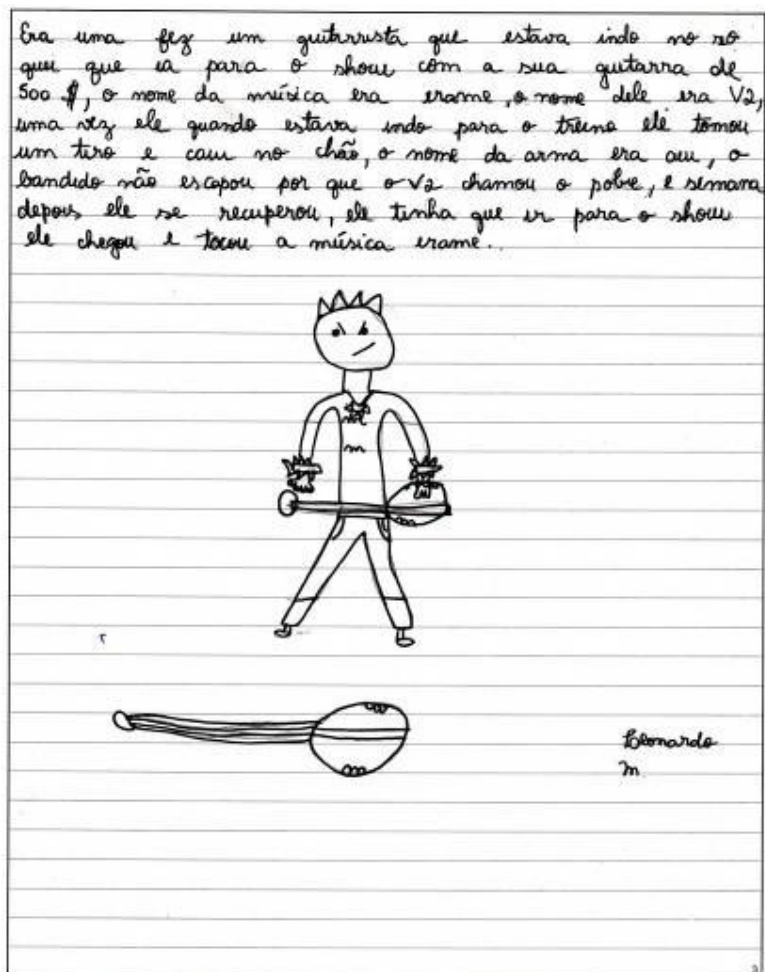 Era uma fez um guitarrista que estava indo no ro
que que ia para o show com a sua guitarra de
500 $, o nome da música era erame, o nome dele era V2,
uma vez ele quando estava indo para o treino ele tomou
um tiro e caiu no chão, o nome da arma era auu, o
bandido não escapou por que o V2 chamou o pobre, e semana
depois ele se recuperou, ele tinha que ir para o show
ele chegou e tocou a música erame.
m
m
Leonardo
m